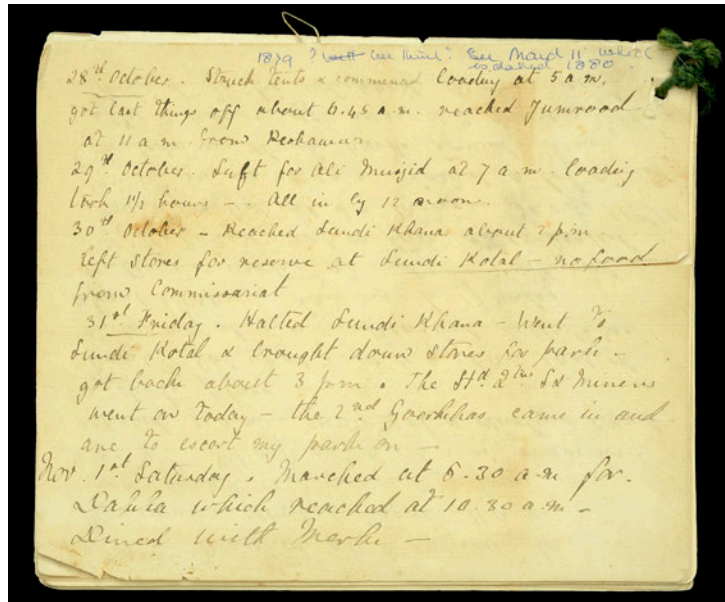 1879 ? we think? See March 11 which
is dated 1880.
28th October. Struck tents & commenced loading at 5 a.m.
got last things off about 6.45 a.m. reached Jumrood
at 11 a.m. from Peshawur
29th October. Left for Ali Musjid at 7 a.m. loading
took 1 1/2 hours - . All in by 12 noon.
30th October - Reached Lundi Khana about 2 p.m.
left stores for reserve at Lundi Kotal - no food
from Commissariat
31st Friday. Halted Lundi Khana - Went to
Lundi Kotal & brought down stores for park -
got back about 3 p.m. The Hd. Qrs S & Miners
went on today - the 2nd Goorkhas came in and
are to escort my park on -
Nov. 1st Saturday. Marched at 6.30 a.m for
Dakka which reached at 10.30 a.m -
Dined with